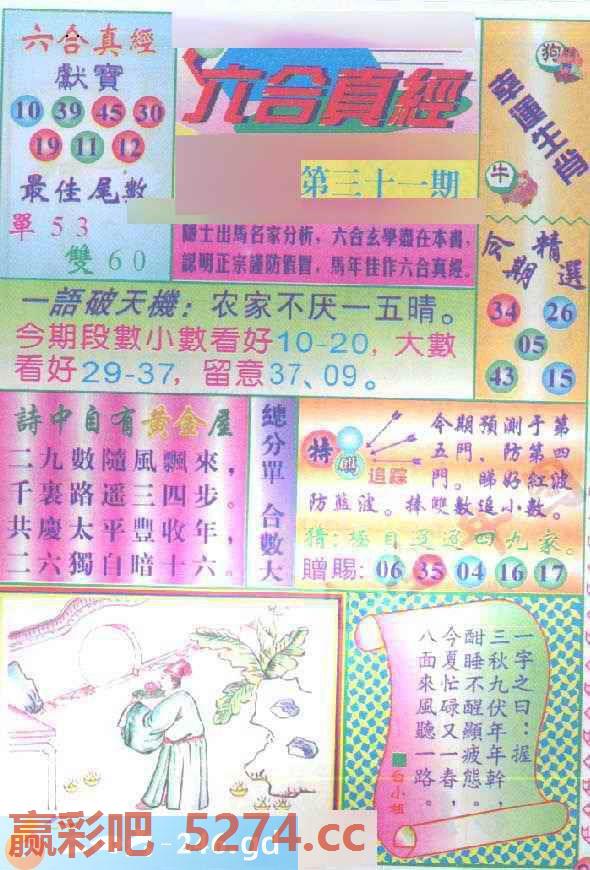 六合真經
獻寶
10 39 45 30
19 11 12
最佳尾數
單 5 3
雙 6 0
六合真經
第三十一期
隱士出馬名家分析，六合玄學盡在本書，
認明正宗謹防假冒，馬年佳作六合真經。
幸運生肖
狗
牛
今期精選
34 26
05
43 15
一語破天機：农家不厌一五晴。
今期段數小數看好10-20，大數
看好29-37，留意37、09。
詩中自有黃金屋
二九數隨風飄來，
千裏路遥三四步。
共慶太平豐收年，
二六獨自暗十六。
總分單 合數大
特 追踪
今期預測于第
五門、防第四
門。睇好紅波
防藍波。捧雙數追小數。
四九家。
贈賜：06 35 04 16 17
一字之曰：握
三秋九伏年年幹，
酣睡不醒顯疲態。
今夏忙碌又一春，
八面來風聽一路。
台小姐
赢彩吧 5274.cc